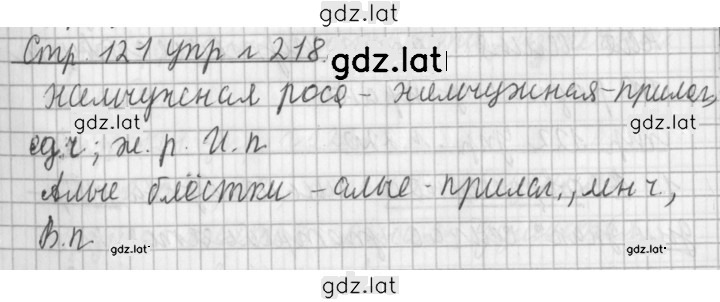 gdz.lat
Стр. 121 упр г 218.
gdz.lat
Жемчужная роса - жемчужная-прилаг,
gdz.lat
gdz.lat
ед.ч; ж. р. И. п
Алые блёстки - алые - прилаг., мн ч.,
В.п
gdz.lat
gdz.lat
gdz.lat